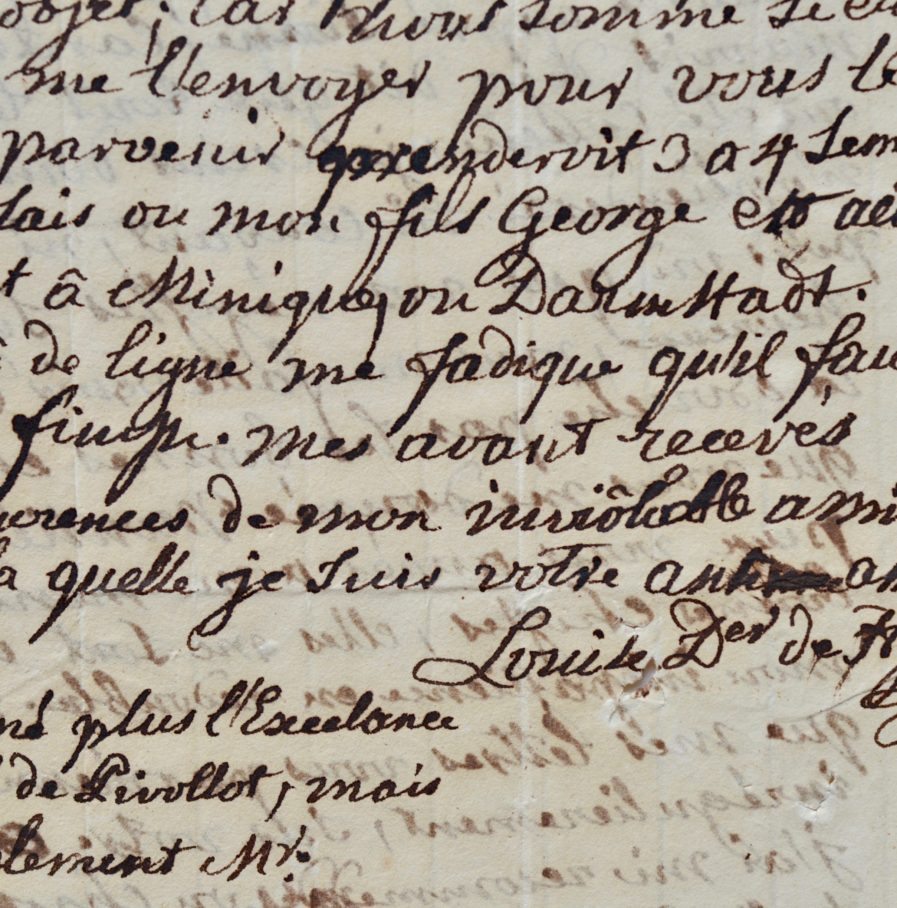 objet; car nous somme si
me l'envoyer pour vous le
parvenir prenderoit 3 a 4 Sem
lais ou mon fils George est
t â Minique, ou Darmstadt.
de ligne me fadique qu'il fau
finir. mes avant recevés
urences de mon inviôlable ami
la quelle je suis votre
Louise Der de
né plus l'Excelance
de Pivollot, mais
lement Mr.